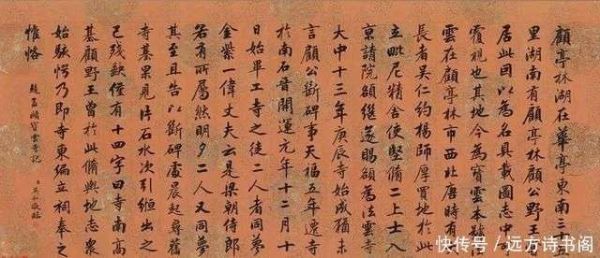 顧亭林湖在華亭東南三十五
里湖南有顧亭林顧公野王
居此因以為名具載圖志中
視也其地今為寶雲本號
雲在顧亭林市西唐時有
長者吴仁約楊師厚買地於此
立毗尼精舍使堅脩二上士入
京請院額繼遂賜額為法雲寺
大中十三年庚辰寺始成猶未
言顧公斷碑事天福五年遷寺
於南石晉開運元年十二月十
日始畢工寺之徒二人者同夢
金紫一偉丈夫云是梁朝侍郎
若有所屬然明夕二人又同夢
其至且告以斷碑處晨起尋舊
寺基果見片石水次引絙出之
已殘缺僅有十四字曰寺南高
基顧野王曾於此脩輿地志衆
始駭愕乃即寺東偏立祠奉之
惟恪
趙孟頫寶雲寺記
快传号／远方诗书阁